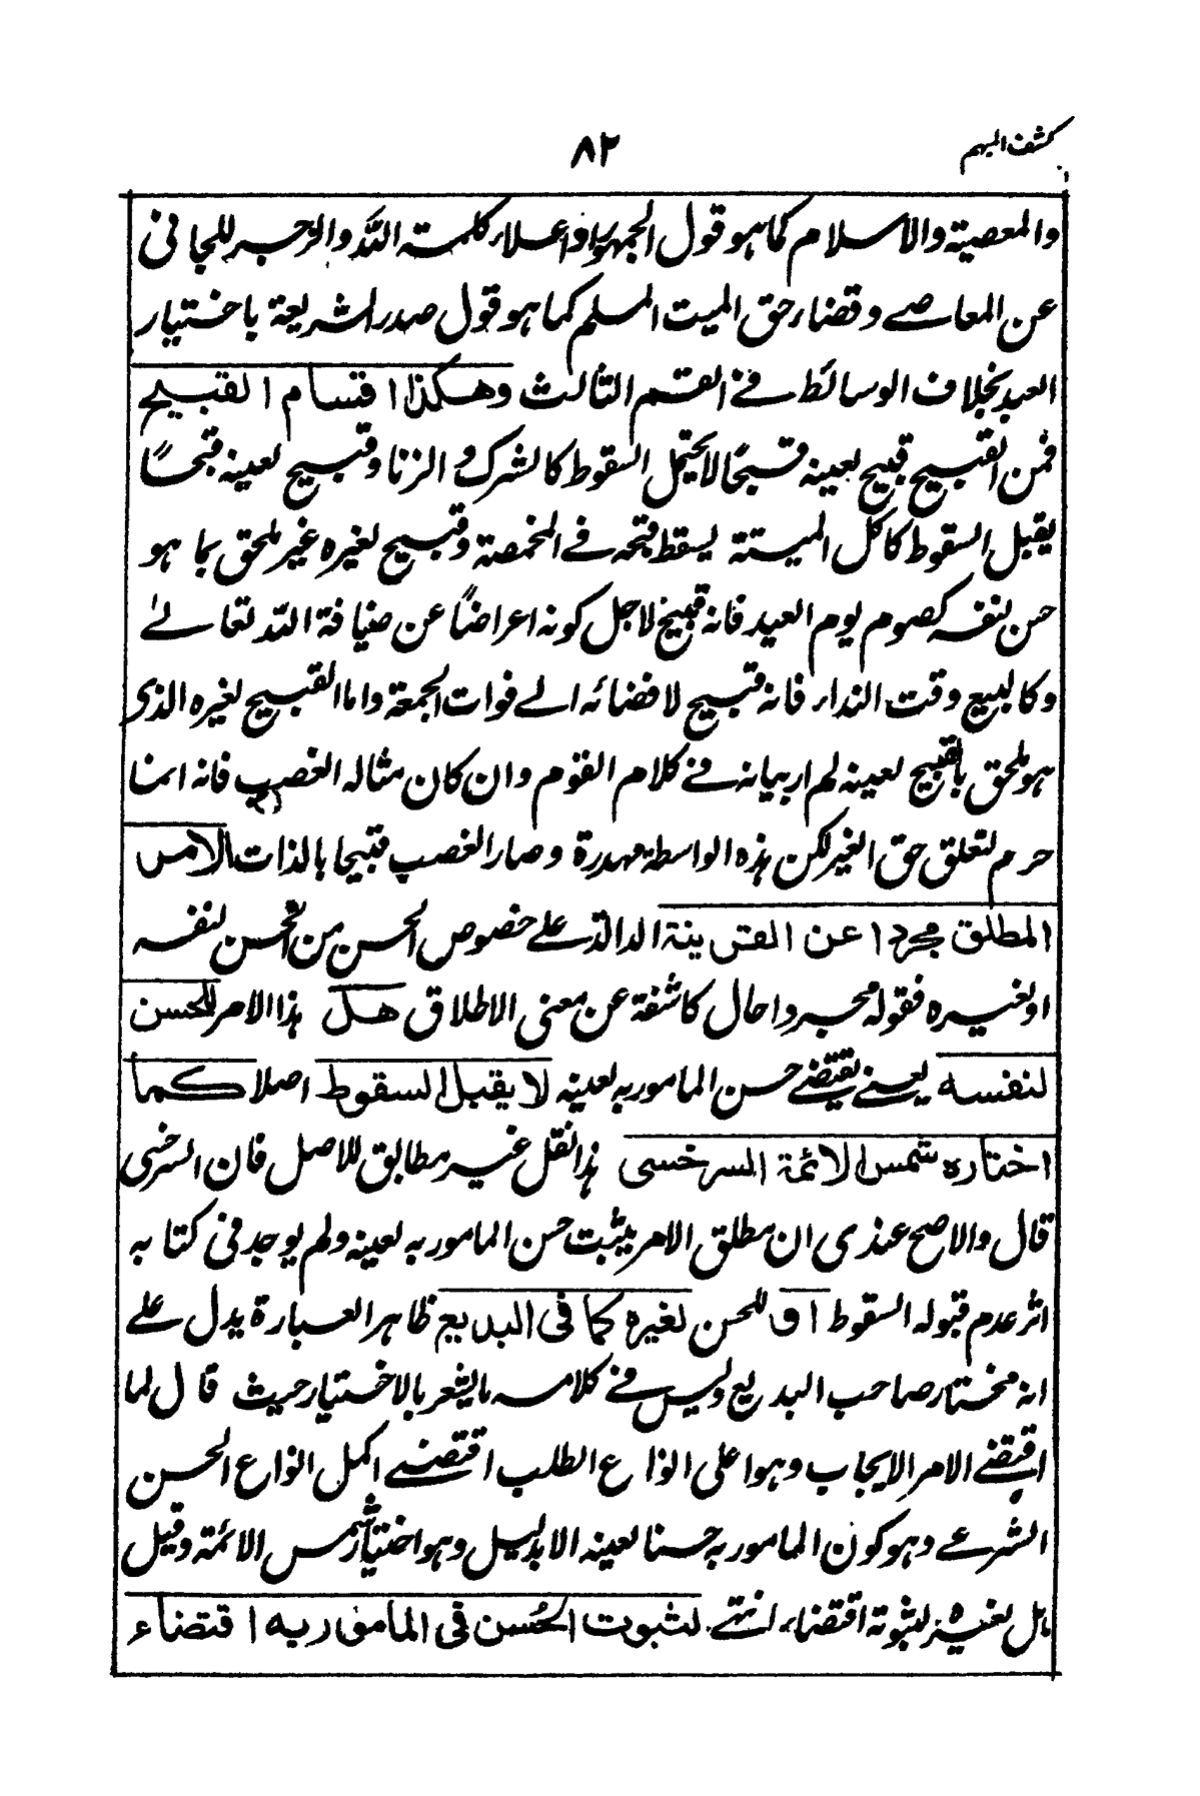 كشف المبهم
٨٢
والمعصية والاسلام كما هو قول الجمهور او اعلاء كلمة الله والزجر للجانى
عن المعاصے وقضاء حق الميت المسلم كما هو قول صدر الشريعة باختيار
العبد بخلاف الوسائط فے القسم الثالث وهكذا اقتسام القبيح
فمن القبيح قبيح لعينه قبحًا لايحتمل السقوط كالشرك والزنا وقبيح لعينه قبحًا
يقبل السقوط كاكل الميتة يسقط قبحه فے المخمصة وقبيح لغيره غير ملحق بما هو
حسن لنفسه كصوم يوم العيد فانه قبيح لاجل كونه اعراضًا عن ضيافة الله تعالے
وكالبيع وقت النداء فانه قبيح لافضائه الے فوات الجمعة واما القبيح لغيره الذى
هو ملحق بالقبيح لعينه لم ار بيانه فے كلام القوم وان كان مثاله الغصب فانه انما
حرم لتعلق حق الغير لكن هذه الواسطة مهدرة وصار الغصب قبيحا بالذات الامر
المطلق مجردا عن القرينة الدالة علے خصوص الحسن من الحسن لنفسه
او لغيره فقوله مجردا حال كاشفة عن معنى الاطلاق هل هذا الامر للحسن
لنفسه يعنے يقتضے حسن المامور به لعينه لا يقبل السقوط اصلا كما
اختاره شمس الائمة السرخسى هذا النقل غير مطابق للاصل فان السرخسى
قال والاصح عندى ان مطلق الامر يثبت حسن المامور به لعينه ولم يوجد فى كتابه
اثر عدم قبوله السقوط او للحسن لغيره كما فى البديع ظاهر العبارة يدل علے
انه مختار صاحب البديع وليس فے كلامه ما يشعر بالاختيار حيث قال لما
اقتضے الامر الايجاب وهو اعلى انواع الطلب اقتضے اكمل انواع الحسن
الشرعے وهو كون المامور به حسنا لعينه الا بدليل وهو اختيار شمس الائمة وقيل
بل لغيره لثبوته اقتضاء انتهے لثبوت الحُسن فى المامور به اقتضاء